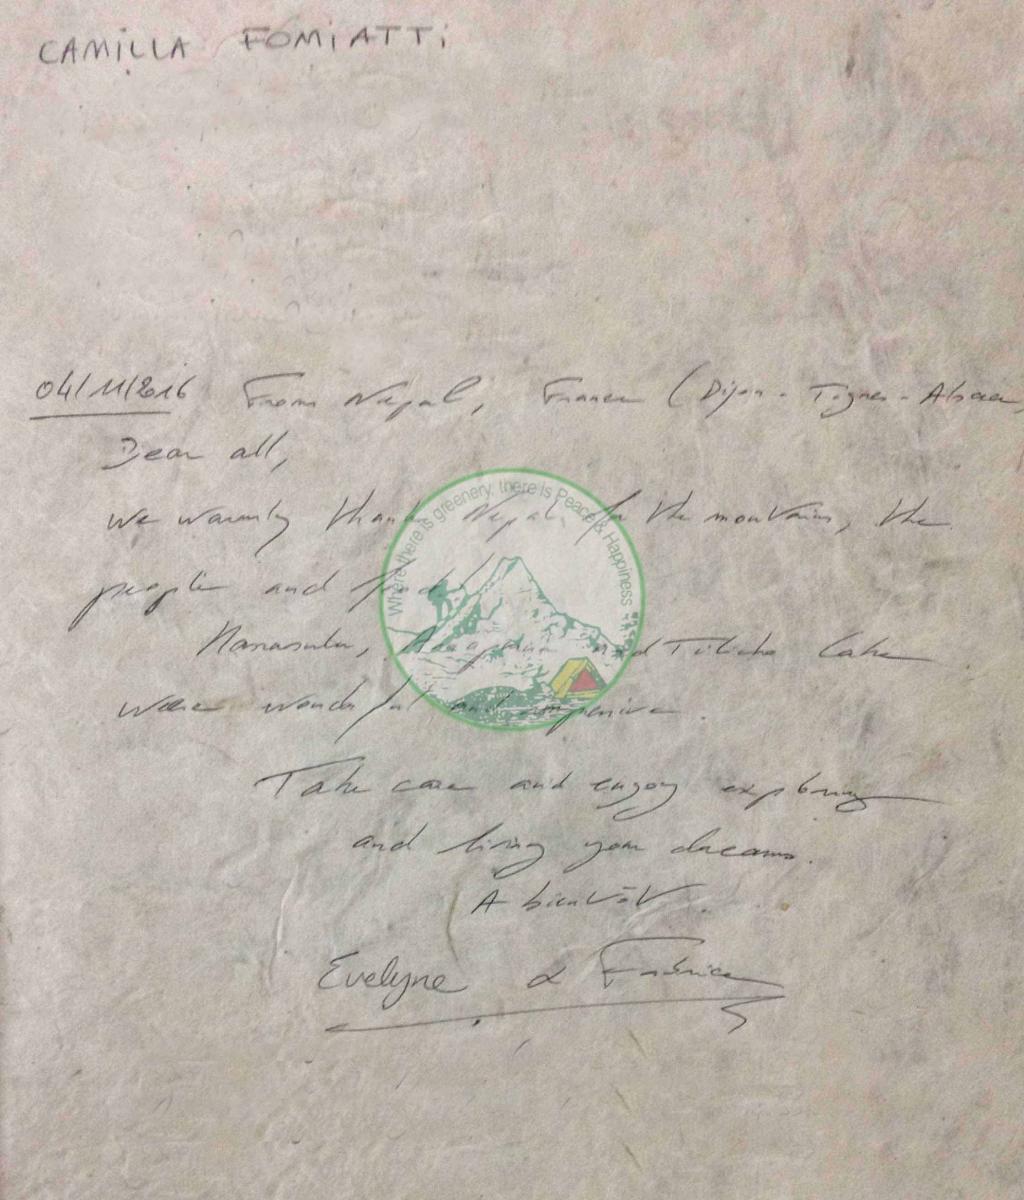 CAMILLA FOMIATTI
04/11/2016 From Nepal, France (Dijon - Tignes - Alsace)
Dear all,
we warmly thank Nepal, for the mountains, the
people and food
Where there is greenery, there is Peace & Happiness
Manasulu, and Tilicho Lake
were wonderful and
Take care and enjoy exploring
and living your dreams.
A bientôt.
Evelyne & Fabrice